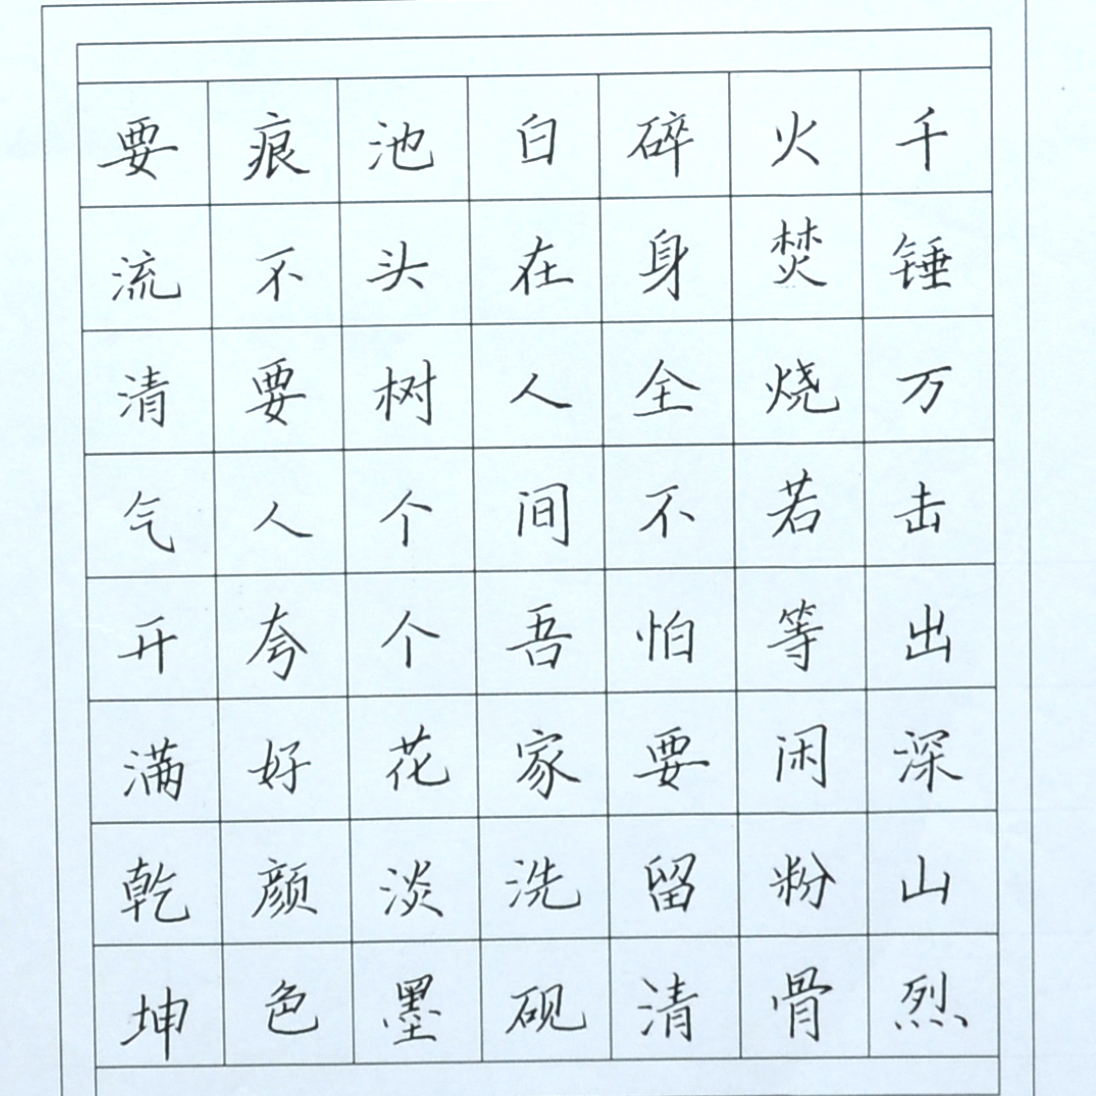 千锤万击出深山烈
火焚烧若等闲粉骨
碎身全不怕要留清
白在人间吾家洗砚
池头树个个花淡墨
痕不要人夸好颜色
要流清气开满乾坤